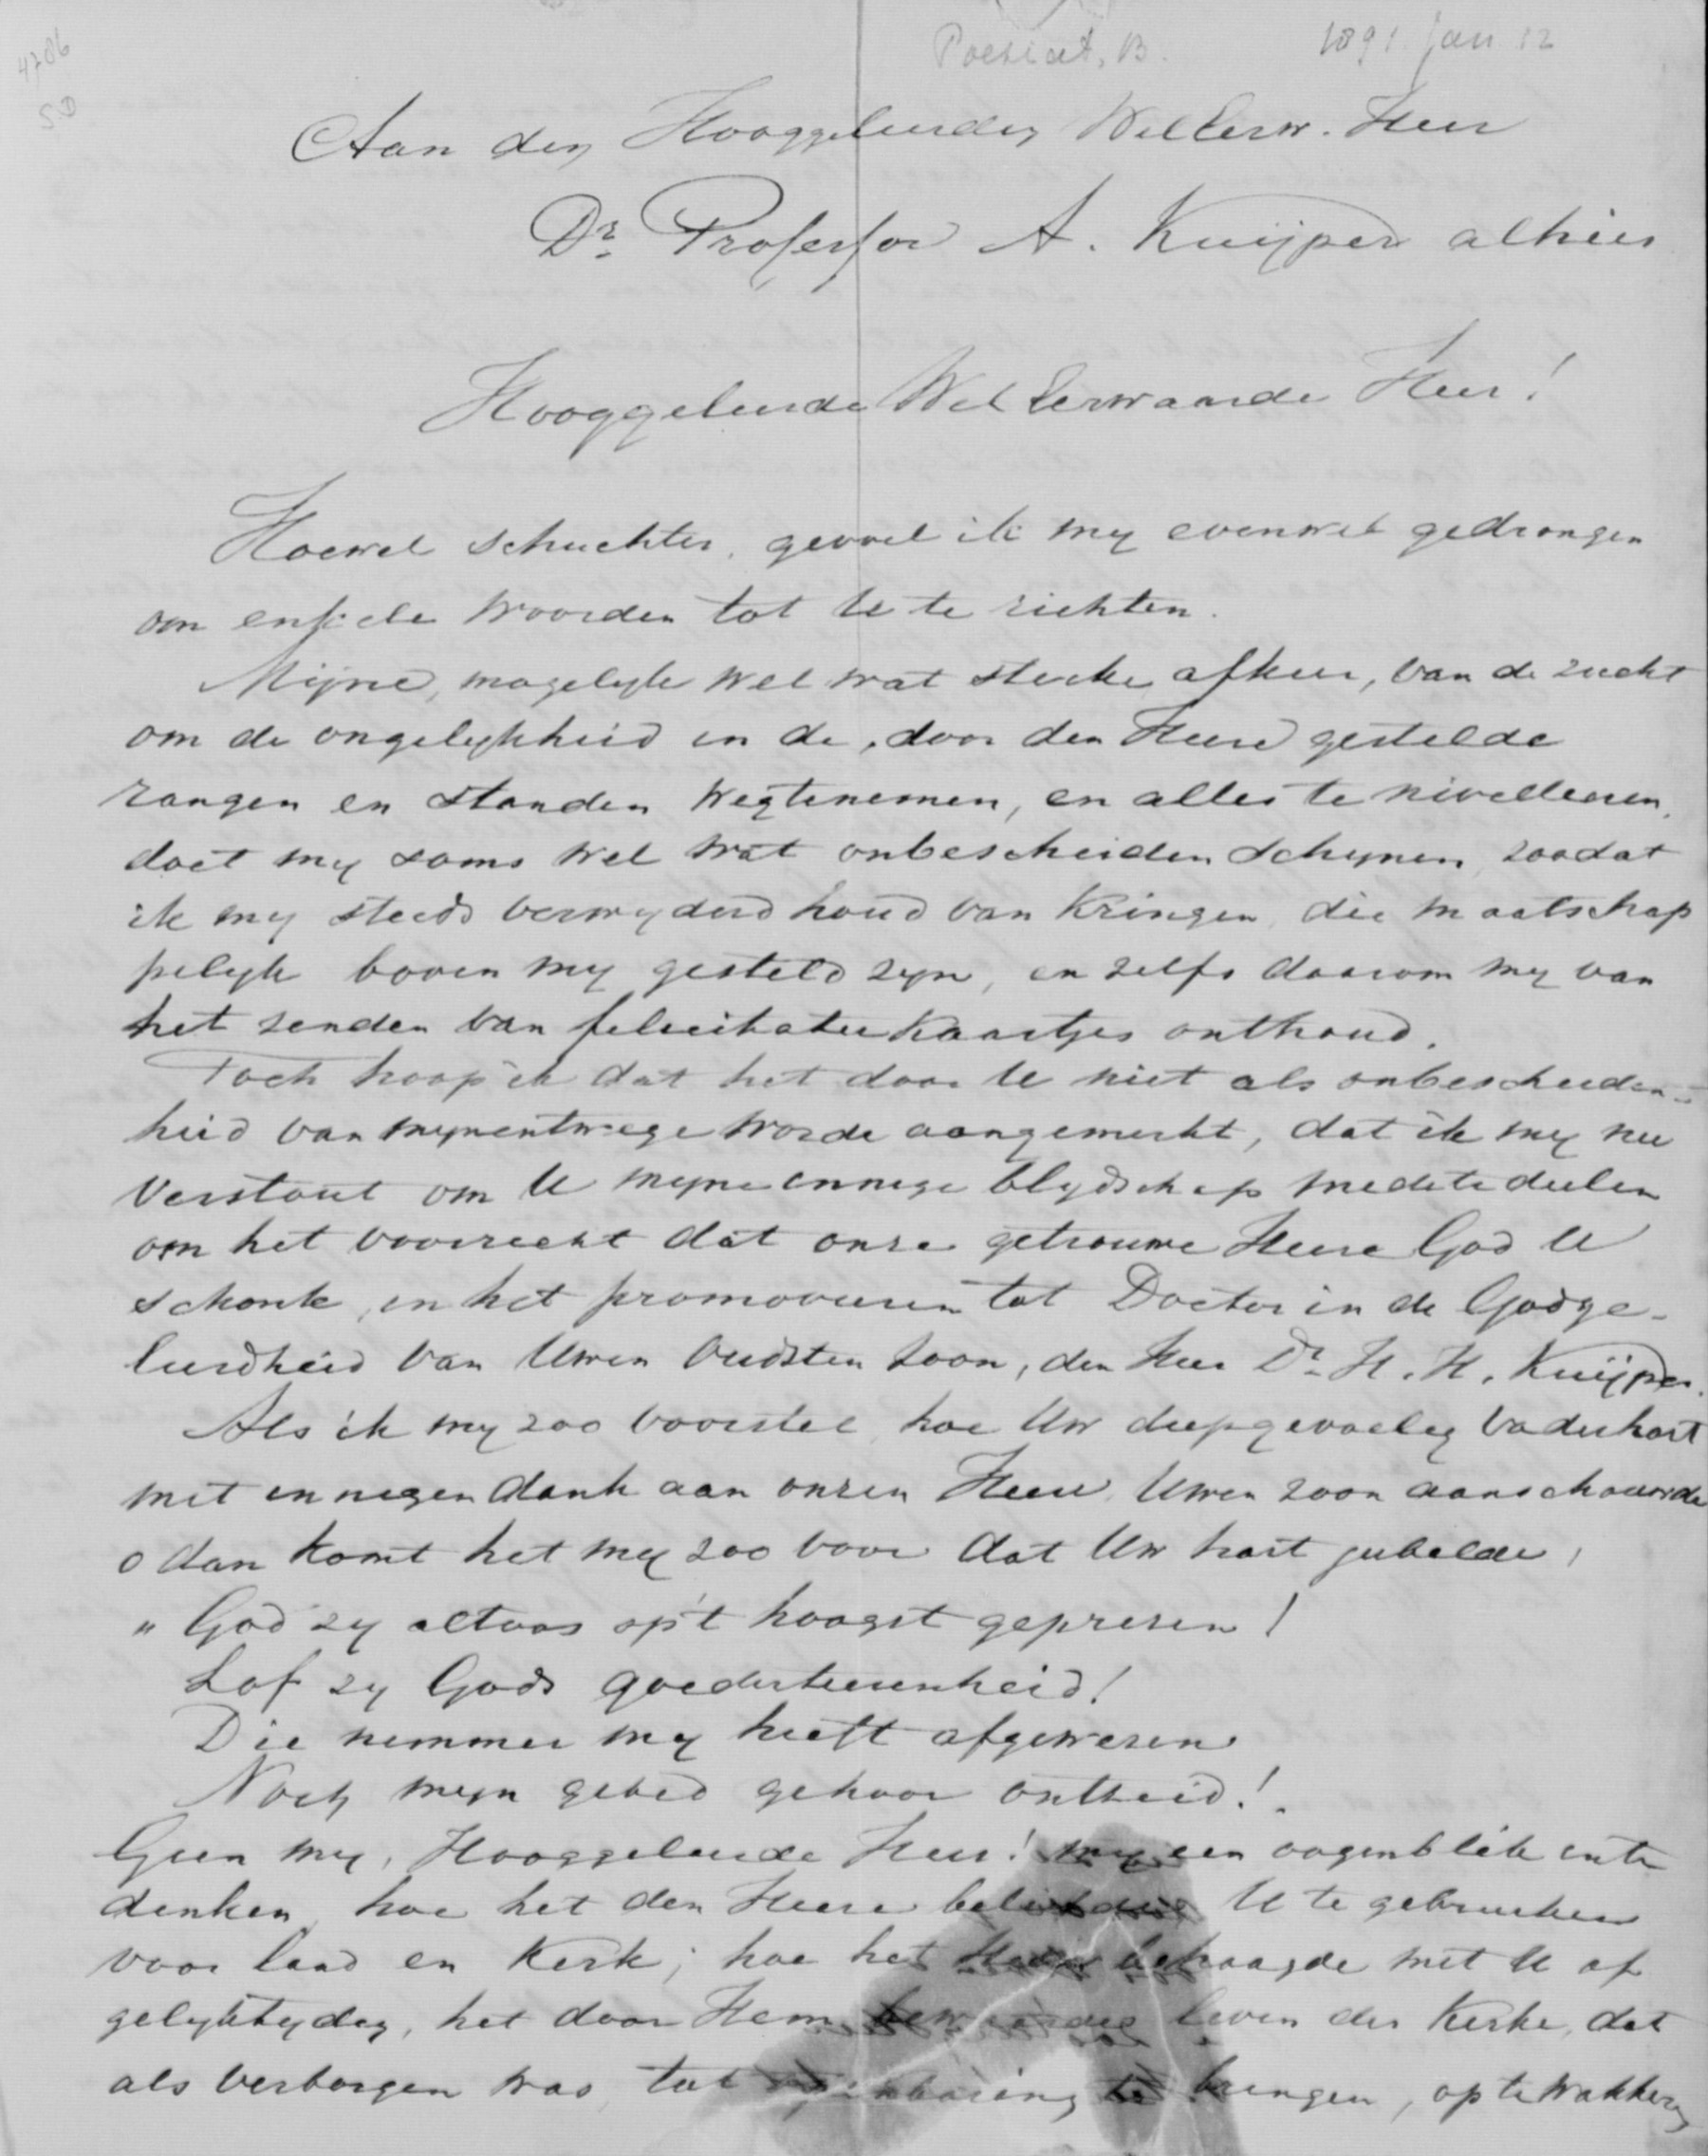 4786
SD
1891 Jan 12
Aan den Hooggeleerden WelEerw. Heer
Dr. Professor A. Kuijper alhier
Hooggeleerde WelEerwaarde Heer!
Hoewel schuchter, gevoel ik my evenwel gedrongen
om enkele woorden tot U te richten.
Mijne, mogelyk wel wat sterke afkeer, van de zucht
om de ongelykheid in de, door den Heere gestelde
rangen en standen wegtenemen, en alles te nivelleeren,
doet my soms wel wat onbescheiden schynen, zoodat
ik my steeds verwyderd houd van kringen, die maatschap
pelyk boven my gesteld zyn, en zelfs daarom my van
het zenden van felicitatiekaartjes onthoud.
Toch hoop ik dat het door U niet als onbescheiden-
heid van mynentwege worde aangemerkt, dat ik my nu
verstout om U myne innige blydschap medetedeelen
om het voorrecht dat onze getrouwe Heere God U
schonk, in het promoveeren tot Doctor in de Godge-
leerdheid van Uwen oudsten zoon, den Heer Dr. H. H. Kuijper.
Als ik my zoo voorstel, hoe Uw diepgevoelig vaderhart
met innigen dank aan onzen Heere, Uwen zoon aanschouwde
o dan komt het my zoo voor dat Uw hart jubelde,
" God zy altoos op't hoogst geprezen!
Lof zy Gods goedertierenheid!
Die nimmer my heeft afgewezen
Noch myn gebed gehoor ontzeid!.
Geen my, Hooggeleerde Heer! my een oogenblik inte
denken, hoe het den Heere beliefde U te gebruiken
voor land en Kerk; hoe het behaagde met U af
gelyktydig, het door Hem leven der Kerke, dat
als verborgen was, tot openbaring te brengen, op te wakkeren